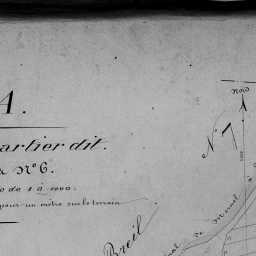 A.
artier dit.
N° 6.
de 1 à 1000.
pour un mètre sur le terrain
Nord
N° 7
Breil